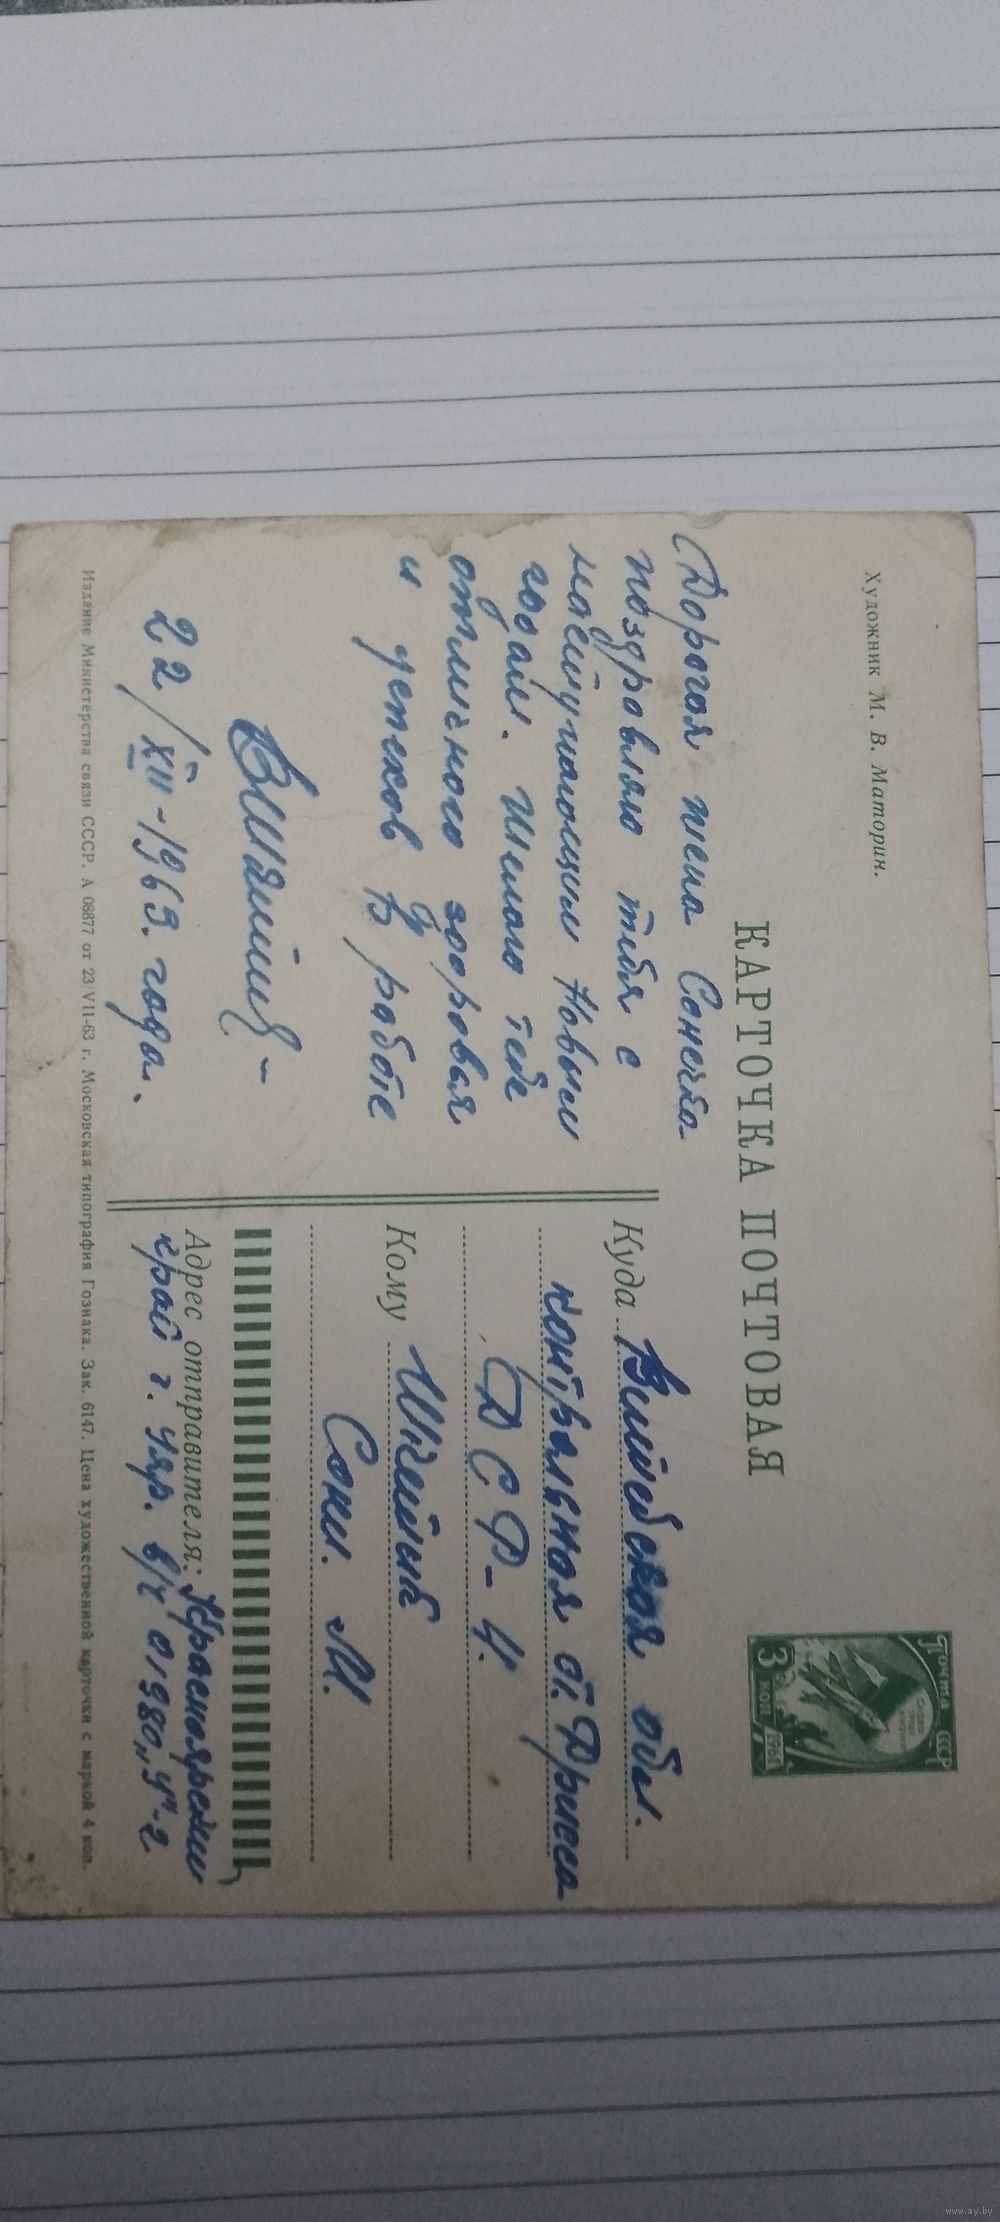 Художник М. В. Маторин.
КАРТОЧКА ПОЧТОВАЯ
ПОЧТА СССР
3 КОП 1961
Дорогая тета Сонечка
поздравляю тебя с
наступающим Новым
годам. Желаю тебе
отличного здоровья
и успехов в работе
22/XII-1963. года.
Куда Витебская обл.
контрольная ст. Дрисса
ДСР-4.
Кому
Сони. М.
Адрес отправителя: Красноярский
край г. Ужр. в/ч 01980 „У"-2
Издание Министерства связи СССР. А 06877 от 23/VII-63 г. Московская типография Гознака. Зак. 6147. Цена художественной карточки с маркой 4 коп.
www.ay.by